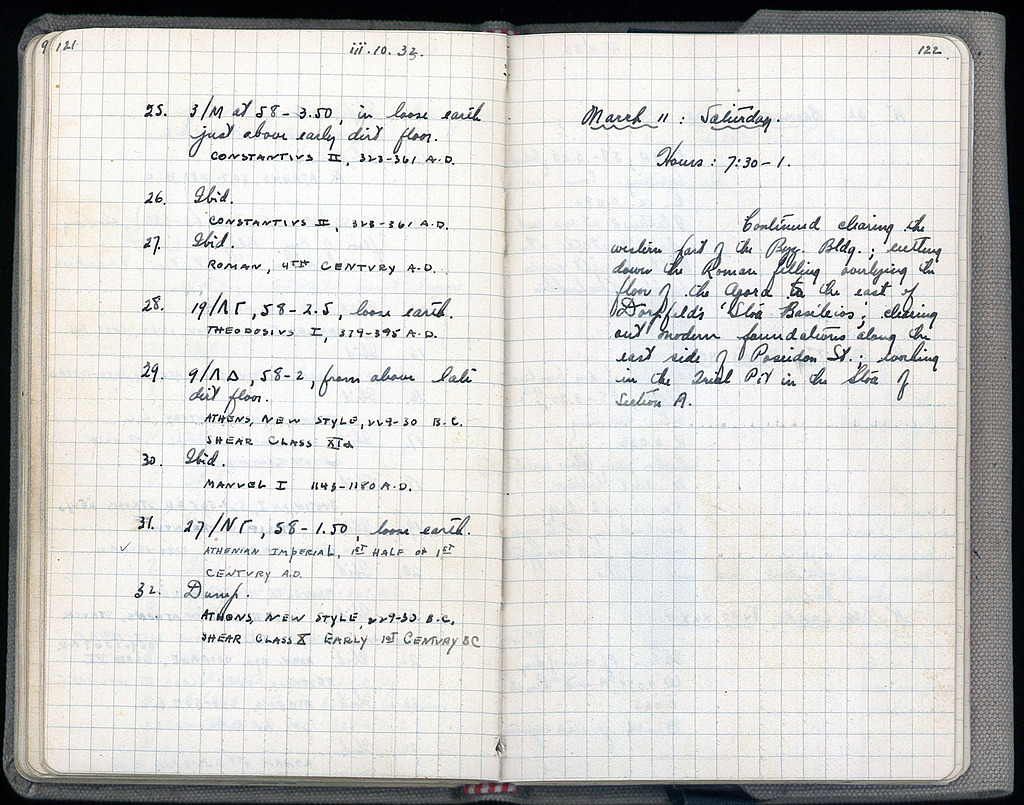 9 121
iii.10.33.
25. 3/M at 58-3.50, in loose earth
just above early dirt floor.
CONSTANTIVS II, 323-361 A.D.
26. Ibid.
CONSTANTIVS II, 323-361 A.D.
27. Ibid.
ROMAN, 4TH CENTVRY A.D.
28. 19/ΛΓ, 58-2.5, loose earth.
THEODOSIVS I, 379-395 A.D.
29. 9/ΛΔ, 58-2, from above late
dirt floor.
ATHENS, NEW STYLE, 229-30 B.C.
SHEAR CLASS XIa
30. Ibid.
MANVEL I 1143-1180 A.D.
31. 27/ΝΓ, 58-1.50, loose earth.
✓ ATHENIAN IMPERIAL, 1ST HALF OF 1ST
CENTVRY A.D.
32. Dump.
ATHENS, NEW STYLE, 229-30 B.C.
SHEAR CLASS X EARLY 1ST CENTURY BC
122
March 11: Saturday.
Hours: 7:30-1.
Continued clearing the
western part of the Pyc. Bldg.; cutting
down the Roman filling overlying the
floor of the Agora to the east of
Dörpfeld's 'Stoa Basileios'; clearing
out modern foundations along the
east side of Poseidon St.; working
in the Trial Pit in the Stoa of
Section A.